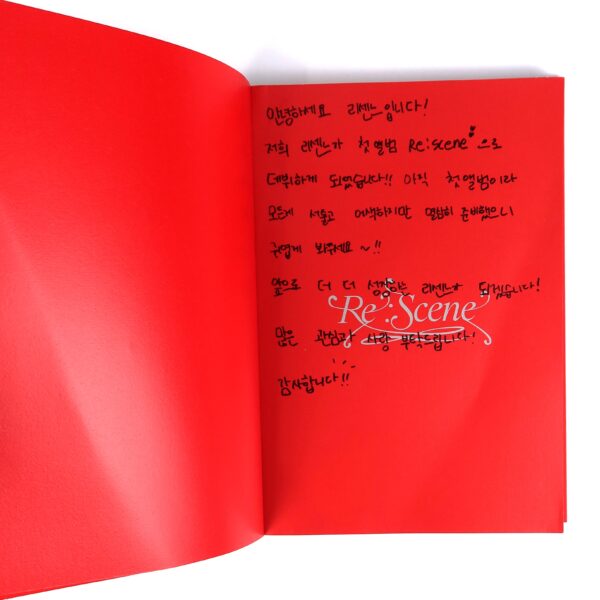 안녕하세요 리센느입니다!
저희 리센느가 첫 앨범 Re:scene으로
데뷔하게 되었습니다!! 아직 첫 앨범이라
모든게 서툴고 어색하지만 열심히 준비했으니
귀엽게 봐주세요~!!
앞으로 더 더 성장하는 리센느가 되겠습니다!
Re:Scene
많은 관심과 사랑 부탁드립니다!
감사합니다!!